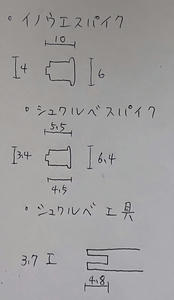 ・イノウエスパイク
10
4
6
・シュワルベスパイク
5,5
3,4
6,4
4,5
・シュワルベ工具
3.7
4,8